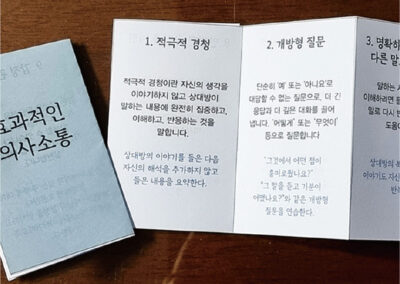 효과적인
의사소통
1. 적극적 경청
적극적 경청이란 자신의 생각을
이야기하지 않고 상대방이
말하는 내용에 완전히 집중하고,
이해하고, 반응하는 것을
말합니다.
상대방의 이야기를 들은 다음
자신의 해석을 추가하지 않고
들은 내용을 요약한다.
2. 개방형 질문
단순히 '예' 또는 '아니요'로
대답할 수 없는 질문으로, 더 긴
응답과 더 깊은 대화를 끌어
냅니다. '어떻게' 또는 '무엇이'
등으로 질문합니다
"그것에서 어떤 점이
흥미로웠나요?"
"그 말을 듣고 기분이
어땠나요?"와 같은 개방형
질문을 연습한다.
3. 명확히
다른 말
말하는
이해하려면
말로 다시
도움
상대방의
이야기도 자신